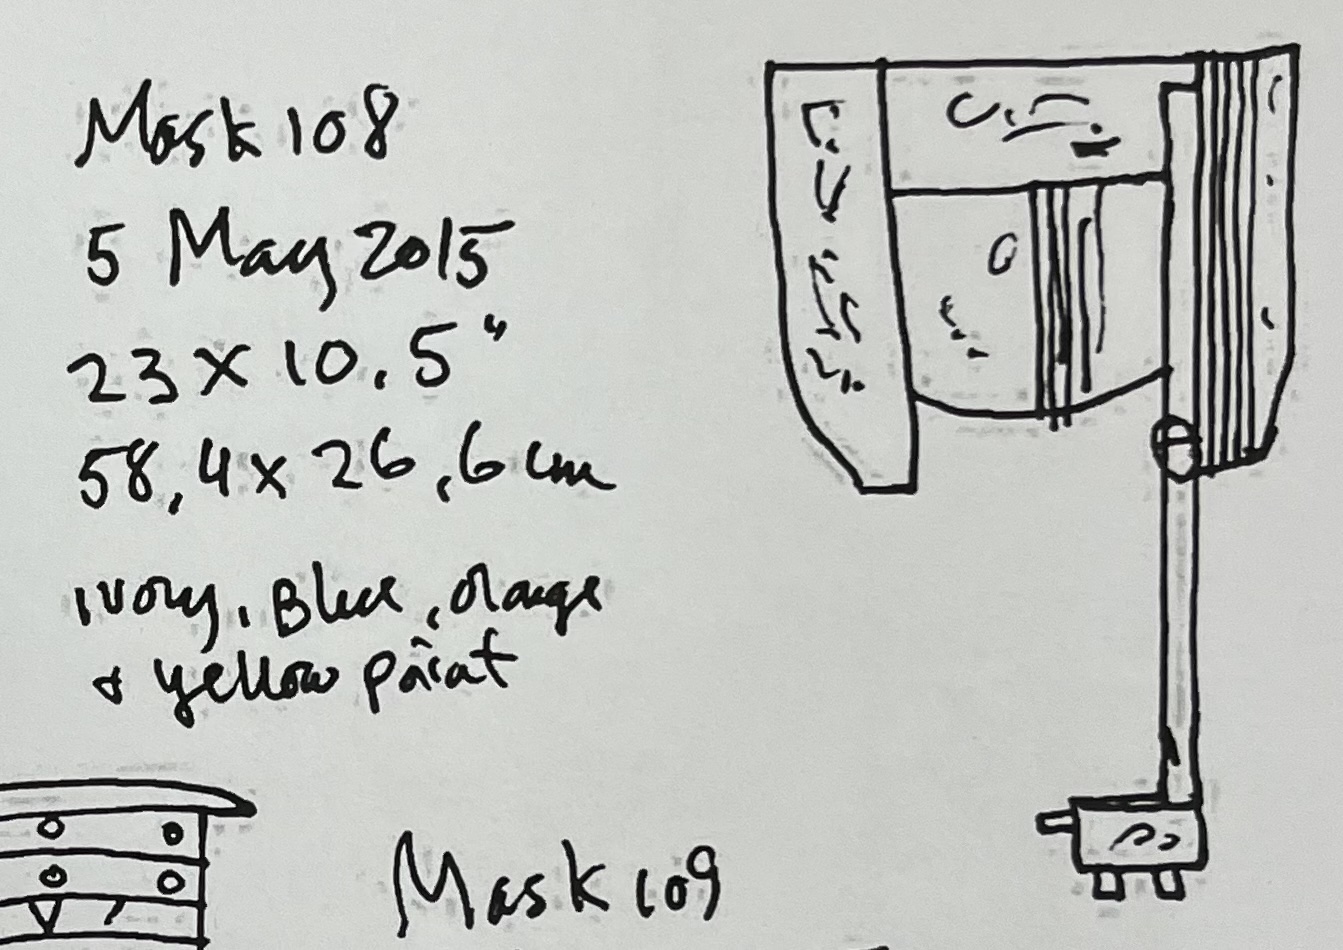 Mask 108
5 May 2015
23 x 10.5"
58,4 x 26,6 cm
ivory, Blue, orange
& yellow paint
Mask 109